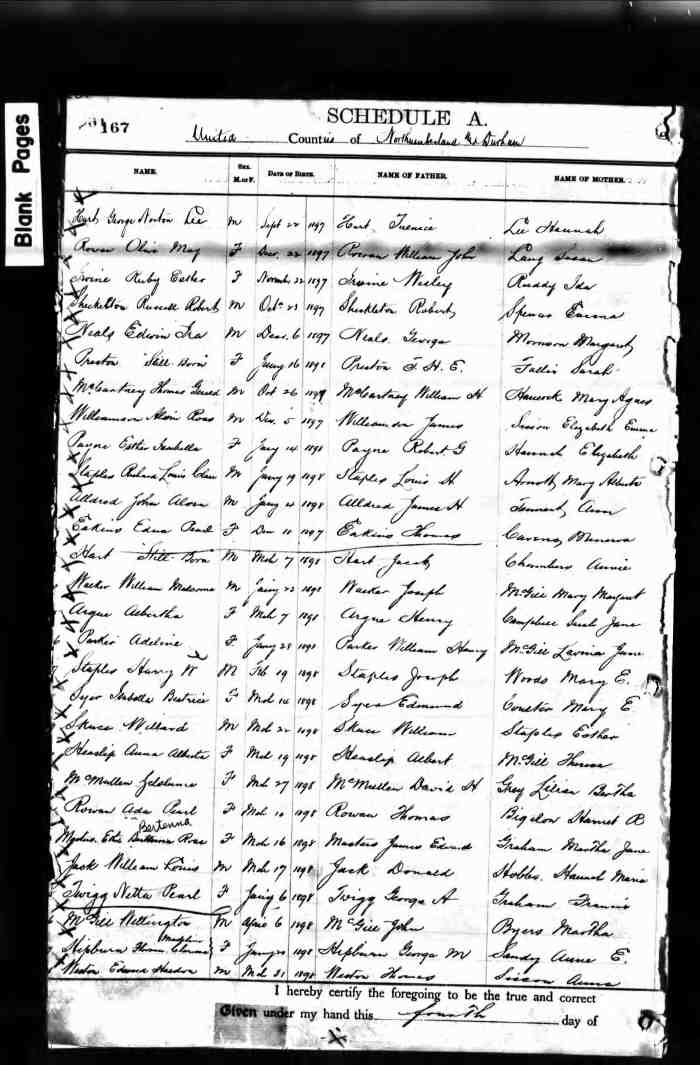 Blank Pages
167
SCHEDULE A.
United Counties of Northumberland & Durham
NAME. SEX. M. or F. DATE OF BIRTH. NAME OF FATHER. NAME OF MOTHER.
Hart George Norton Lee M Sept 22 1897 Hart Lee Hannah
Rowan Olive May F Dec. 22 1897 Rowan William John Lang Susan
Irvine Ruby Esther F November 22 1897 Irvine Wesley Ruddy Ida
Shekelton Russell Robert M Oct 23 1897 Shekleton Robert Spence Emma
Neals Edwin Ira M Dec. 6 1897 Neals George Morrison Margaret
Preston Still Born F Jany 16 1898 Preston T. H. E. Fallis Sarah
McCartney Thomas M Oct 26 McCartney William H Hancock Mary Agnes
Williamson Alvin Ross M Dec. 5 1897 Williamson James Sisson Elizabeth Emma
Payne Esther Isabella F Jany 14 1898 Payne Robert G Hannah Elizabeth
Staples Richard Louis M Jany 19 1898 Staples Louis H Arnott Mary
Alldred John M Jany 1898 Alldred James H Tennant Ann
Eakins Edna Pearl F Dec 11 1897 Eakins Thomas Minerva
Hart Still-Born M Mch 7 1898 Hart Jacob Chambers Annie
Walker William Malcolm M Jany 22 1898 Walker Joseph McGill Mary Margaret
Argue Albertha F Mch 7 1898 Argue Henry Campbell Sarah Jane
Parker Adeline F Jany 28 1898 Parker William Henry McGill Lavina Jane
Staples Harry W M Feb 19 1898 Staples Joseph Woods Mary E.
Syer Isabella Beatrice F Mch 14 1898 Syer Edmund Coulter Mary E
Skuce Willard M Mch 22 1898 Skuce William Staples Esther
Heaslip Anna Alberta F Mch 19 1898 Heaslip Albert McGill Theresa
McMullen F Mch 27 1898 McMullen David H Grey Lilian Bertha
Rowan Ada Pearl F Mch 10 1898 Rowan Thomas Bigelow Harriet R
Bertenna
Masters Etta Rose F Mch 16 1898 Masters James Edward Graham Martha Jane
Jack William Louis M Mch 17 1898 Jack Donald Hobbs Hannah Maria
Twigg Netta Pearl F Jany 6 1898 Twigg George A Graham Francis
McGill Wellington M April 6 1898 McGill John Byers Martha
Hepburn F Jany 1898 Hepburn George M Sandy Anne E.
Weston Edward M Mch 31 1898 Weston Thomas Sisson Anna
I hereby certify the foregoing to be the true and correct
Given under my hand this fourth day of